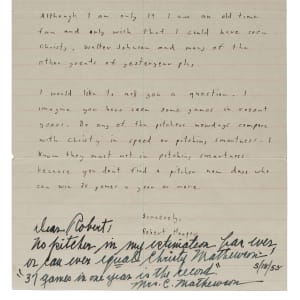 Although I am only 19 I am an old time
fan and only wish that I could have seen
Christy, Walter Johnson and many of the
other greats of yesteryear play.
I would like to ask you a question. I
imagine you have seen some games in recent
years. Do any of the pitchers nowdays compare
with Christy in speed or pitching smartness. I
know they must not in pitching smartness
because you don't find a pitcher now days who
can win 30 games a year or more.
Sincerely,
Robert
Dear Robert:
No pitcher in my estimation has ever
or can ever equal Christy Mathewson!
"37 games in one year is the record"
5/18/52
Mrs. C. Mathewson